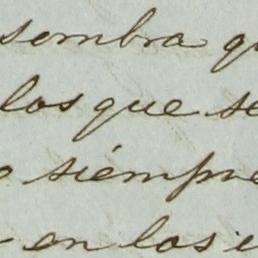 sombra q
los que se
o siempre
en los i